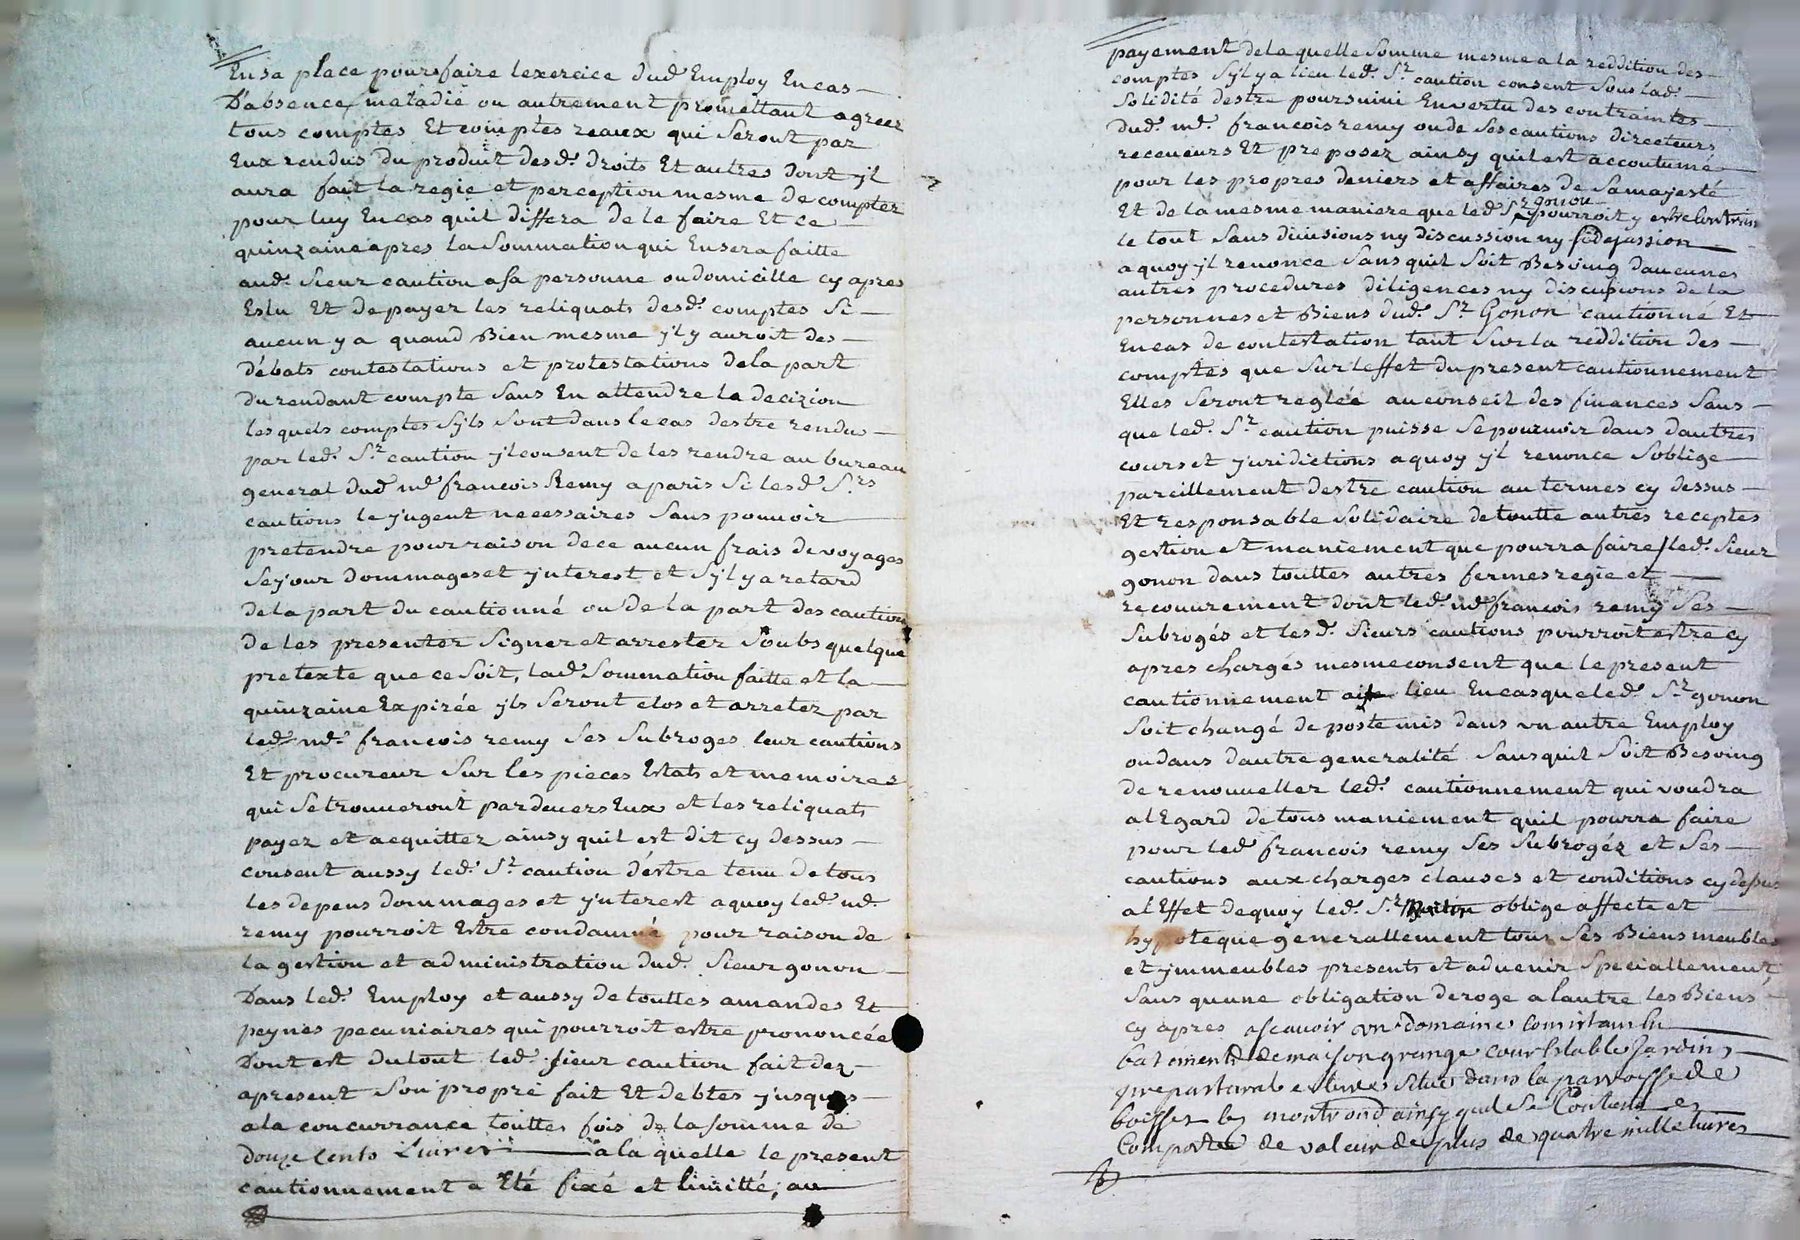 En sa place pour faire lexercice dud. Employ En cas
D'absence, maladie ou autrement promettant agreer
tous comptes Et comptes reaux qui seront par
Eux rendus du produit desd. droits Et autres dont jl
aura fait la regie et perception mesme de compter
pour luy En cas quil differa de le faire Et ce
quinzaine apres la sommation qui En sera faitte
aud. sieur caution a sa personne ou domicille cy apres
Eslu Et de payer les reliquats desd. comptes si
aucun y a quand Bien mesme jl y auroit des
débats contestations et protestations de la part
du rendant compte sans En attendre la decizion
lesquels comptes sjls sont dans le cas destre rendus
par led. Sr. caution jl consent de les rendre au bureau
general dud. me. francois Remy a paris si lesd. Srs.
cautions le jugent necessaires sans pouvoir
pretendre pour raison de ce aucun frais de voyages
sejour dommages et jnterest et sjl y a retard
de la part du cautionné ou de la part des cautions
de les presenter signer et arrester soubs quelque
pretexte que ce soit, lad. sommation faitte et la
quinzaine Expirée jls seront clos et arretez par
led. me. francois remy ses subroges leur cautions
Et procureur sur les pieces Estats et memoires
qui se trouveront pardevers Eux et les reliquats
payez et acquittez ainsy quil est dit cy dessus
consent aussy led. Sr. caution d'estre tenu de tous
les depens dommages et jnterest a quoy led. me.
remy pourroit Estre condamné pour raison de
la gestion et administration dud. sieur gonon
Dans led. Employ et aussy de touttes amandes Et
peynes pecuniaires qui pourroit estre prononcée
Dont est du tout led. sieur caution fait dez
apresent son propre fait Et debtes jusques
a la concurrance touttes fois de la somme de
douze Cents Livres a la quelle le present
cautionnement a Eté fixé et limitté, au
payement de la quelle somme mesme a la reddition des
comptes sjl y a lieu led. Sr. caution consent sous lad.
solidité destre poursuivi En vertu des contraintes
dud. me. francois remy ou de ses cautions directeurs
receveurs Et preposez ainsy quil est accoutumé
pour les propres deniers et affaires de sa majesté
gonon
Et de la mesme maniere que led. Sr. pourroit y estre Contrain
le tout sans divisions ny discussion ny fidejussion
a quoy jl renonce sans quil soit Besoing daucunes
autres procedures diligences ny discusions de la
personnes et Biens dud. Sr. Gonon cautionné Et
En cas de contestation tant sur la reddition des
comptes que sur leffet du present cautionnement
Elles seront reglée au conseil des finances sans
que led. Sr. caution puisse se pourvoir dans dautres
cours et juridictions a quoy jl renonce soblige
pareillement destre caution au termes cy dessus
Et responsable solidaire de toutte autres receptes
gestion et maniement que pourra faire led. sieur
gonon dans touttes autres fermes regie et
recouvrement dont led. me. francois remy ses
subrogés et lesd. sieurs cautions pourroit estre cy
apres chargés mesme consent que le present
cautionnement ait lieu En cas que led. Sr. gonon
soit changé de poste mis dans un autre Employ
ou dans dautre generalité sans quil soit Besoing
de renouveller led. cautionnement qui voudra
a lEgard de tous maniement quil pourra faire
pour led. francois remy ses subrogéz et ses
cautions aux charges clauses et conditions cy dessus
a lEffet de quoy led. Sr. oblige affecte et
hypoteque generallement tous ses Biens meubles
et jmmeubles presents et advenir speciallement,
sans quune obligation deroge a lautre les Biens
cy apres ascavoir un domaine Consistant En
batiments de maison grange cour Estable jardins
pres situés dans la parroisse de
boisset les montrond ainsy quil se Contient et
Comporte de valeur de plus de quatre mille livres